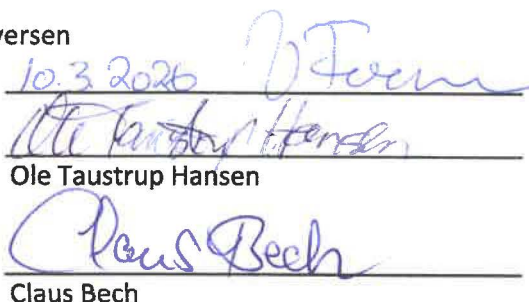 versen
10.3.2026
Ole Taustrup Hansen
Ole Taustrup Hansen
Claus Bech
Claus Bech